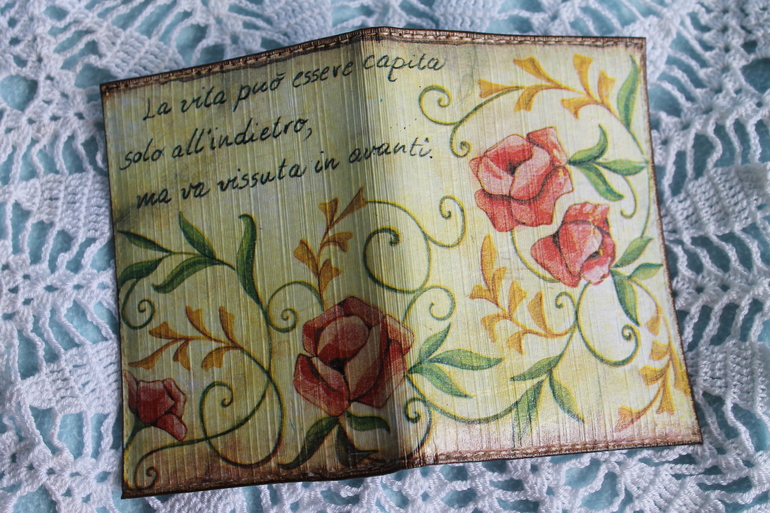 La vita può essere capita
solo all'indietro,
ma va vissuta in avanti.